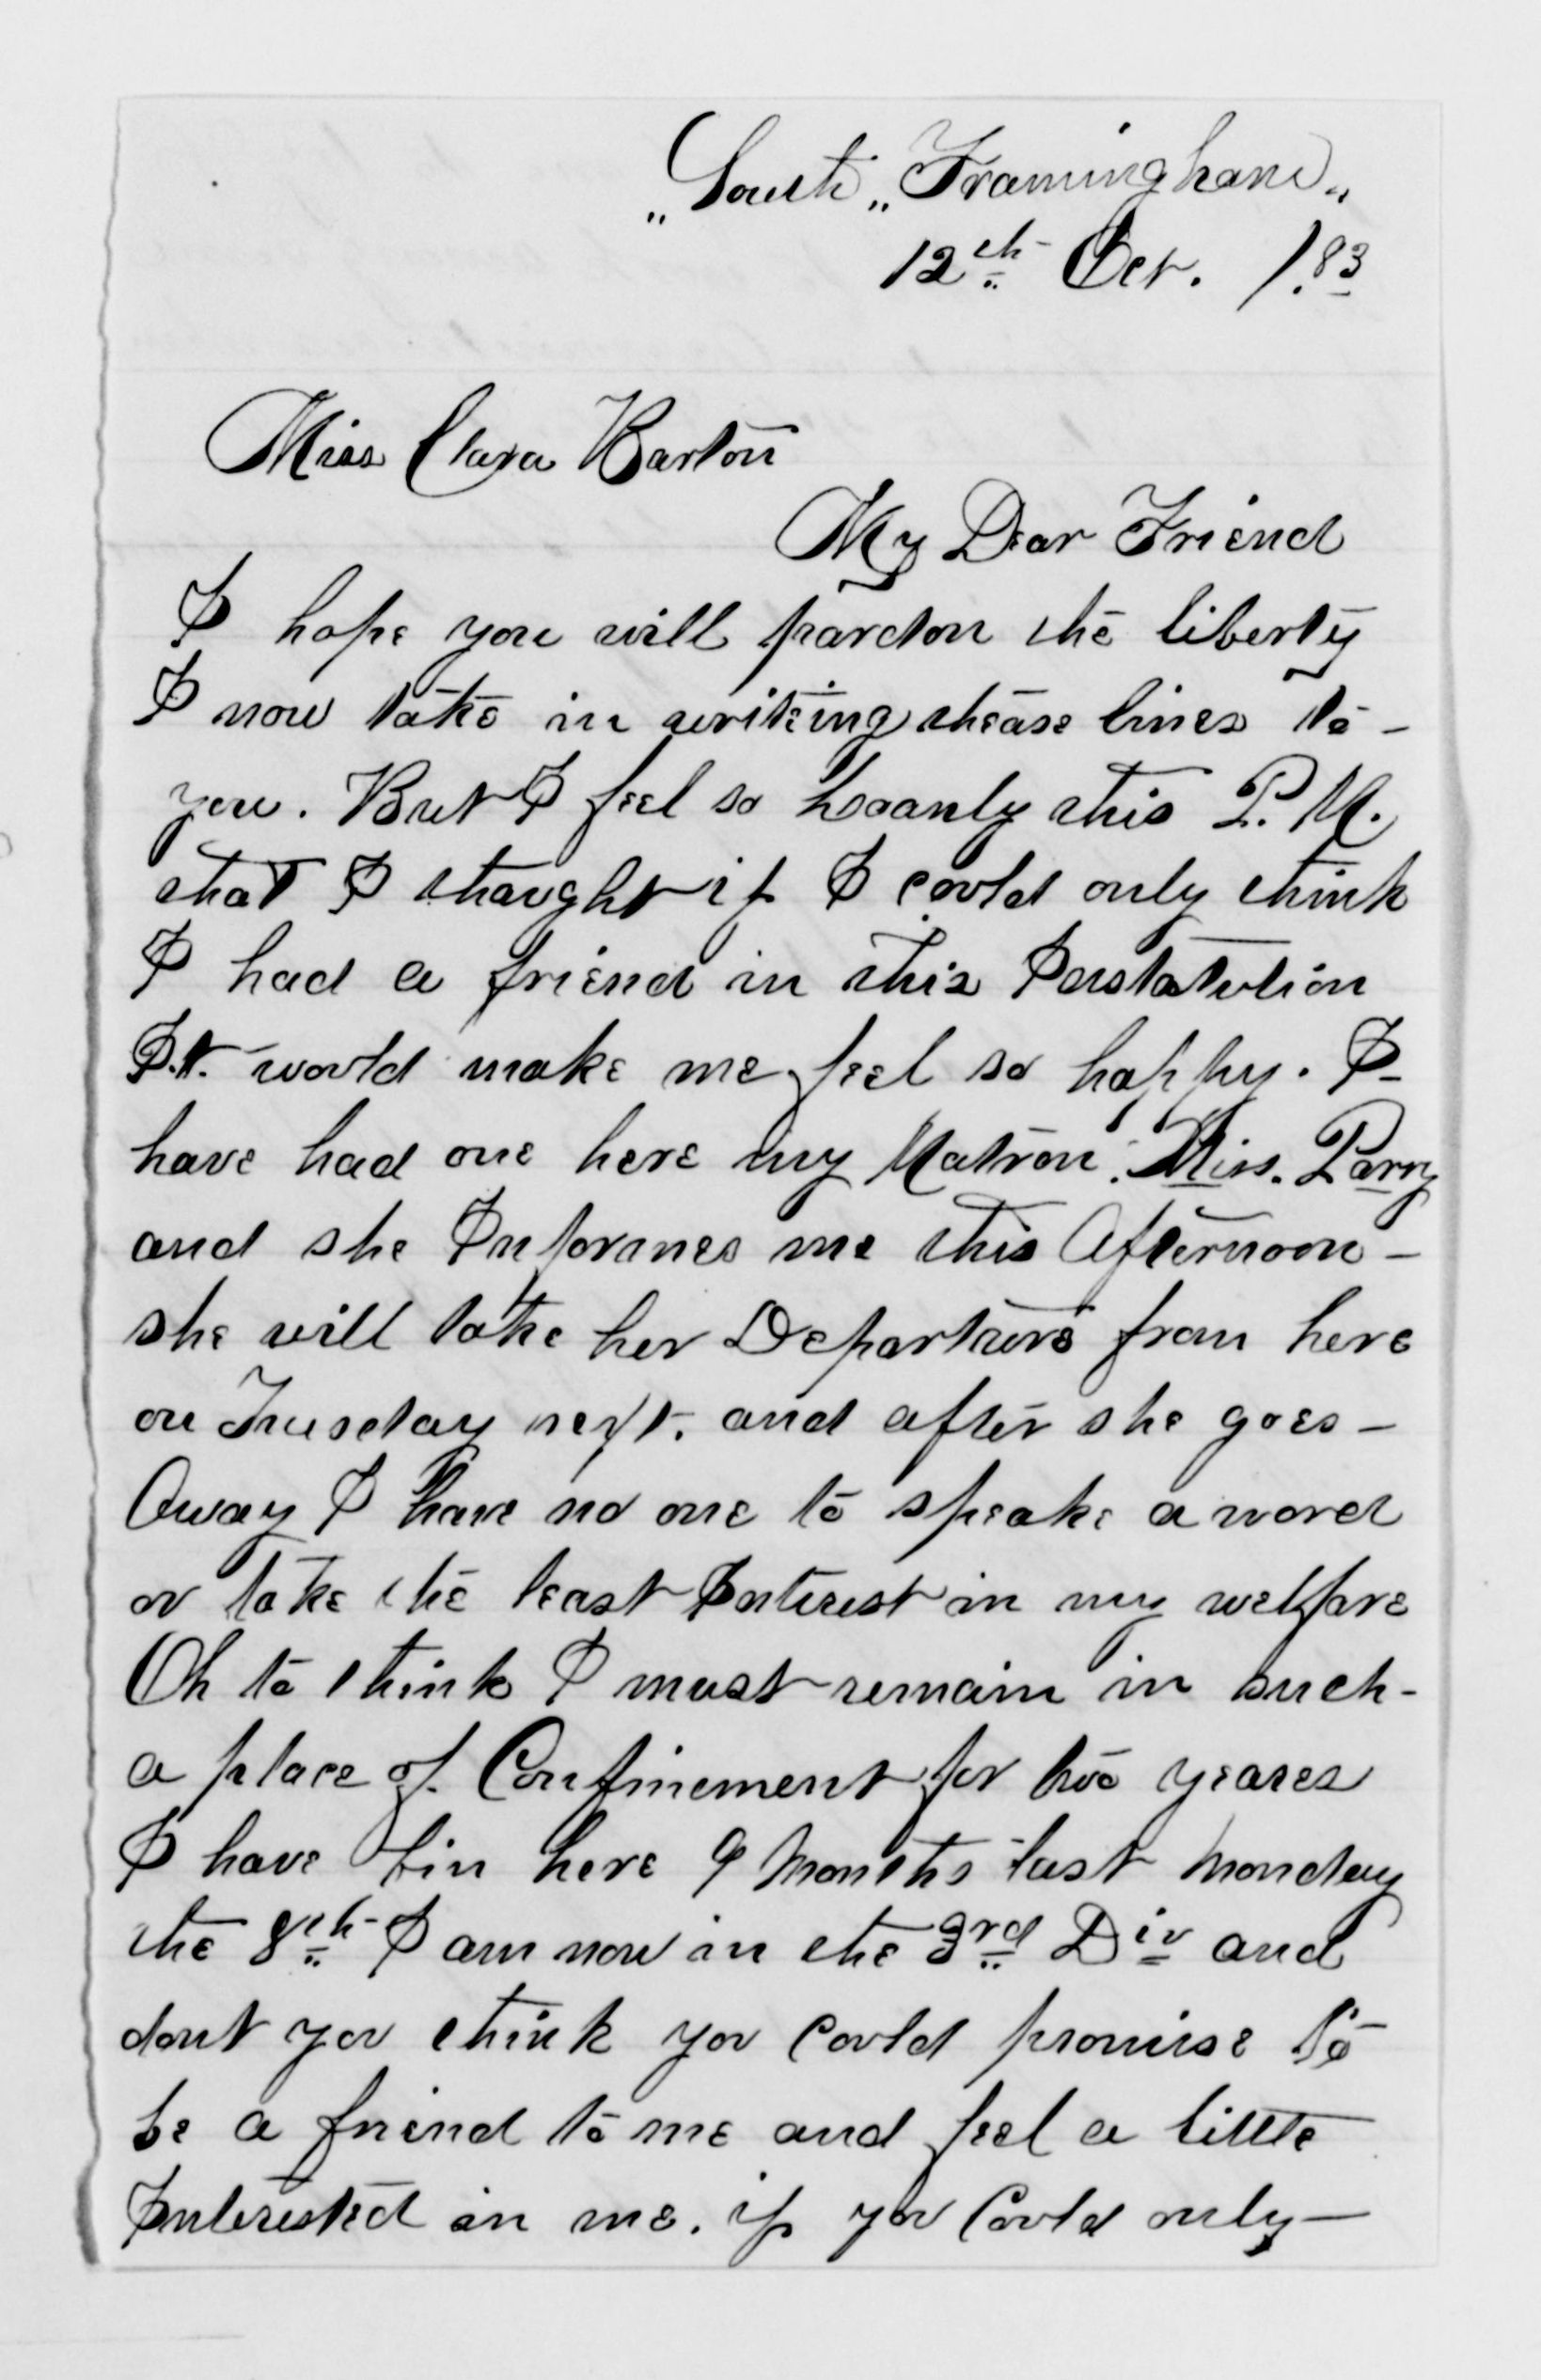 „South „Framingham„
12th Oct. /.83
Miss Clara Barton
My Dear Friend
I hope you will pardon the liberty
I now take in writeing thease lines to -
you. But I feel so loanly this P. M.
that I thought if I could only think
I had a friend in this Instatution
I.t. would make me feel so happy. I -
have had one here my Matron. Miss. Parry
and she Informes me this Afternoon -
she will take her Departure from here
on Tuesday next. and after she goes -
Away I have no one to speake a word
or take the least Interest in my welfare
Oh to think I must remain in such -
a place of Confinement for two yeares
I have bin here 9 Months last Monday
the 8th I am now in the 3rd Div and
dont you think you could promise to
be a friend to me and feel a little
Interested in me. if you Could only -